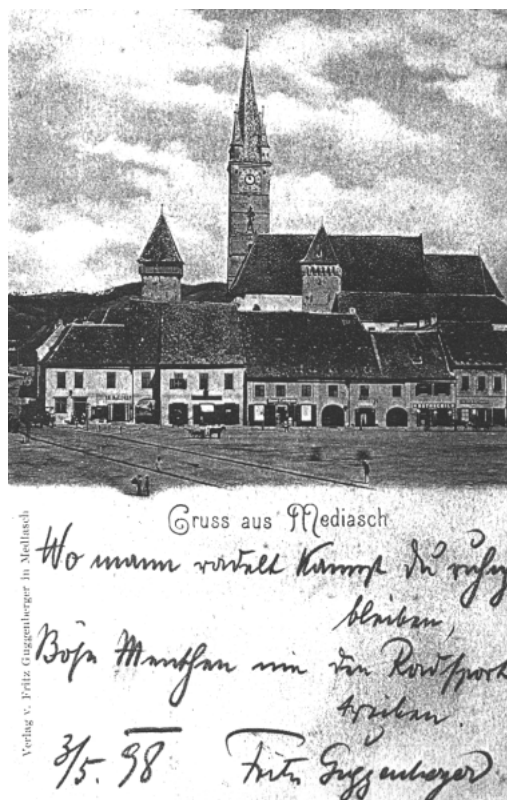 ROTHSCHILD
Gruss aus Mediasch
Verlag v. Fritz Guggenberger in Mediasch
Wo mann radelt kannst du ruhig
bleiben,
Böse Menschen nie den Radsport
treiben.
3/5. 98 Fritz Guggenberger